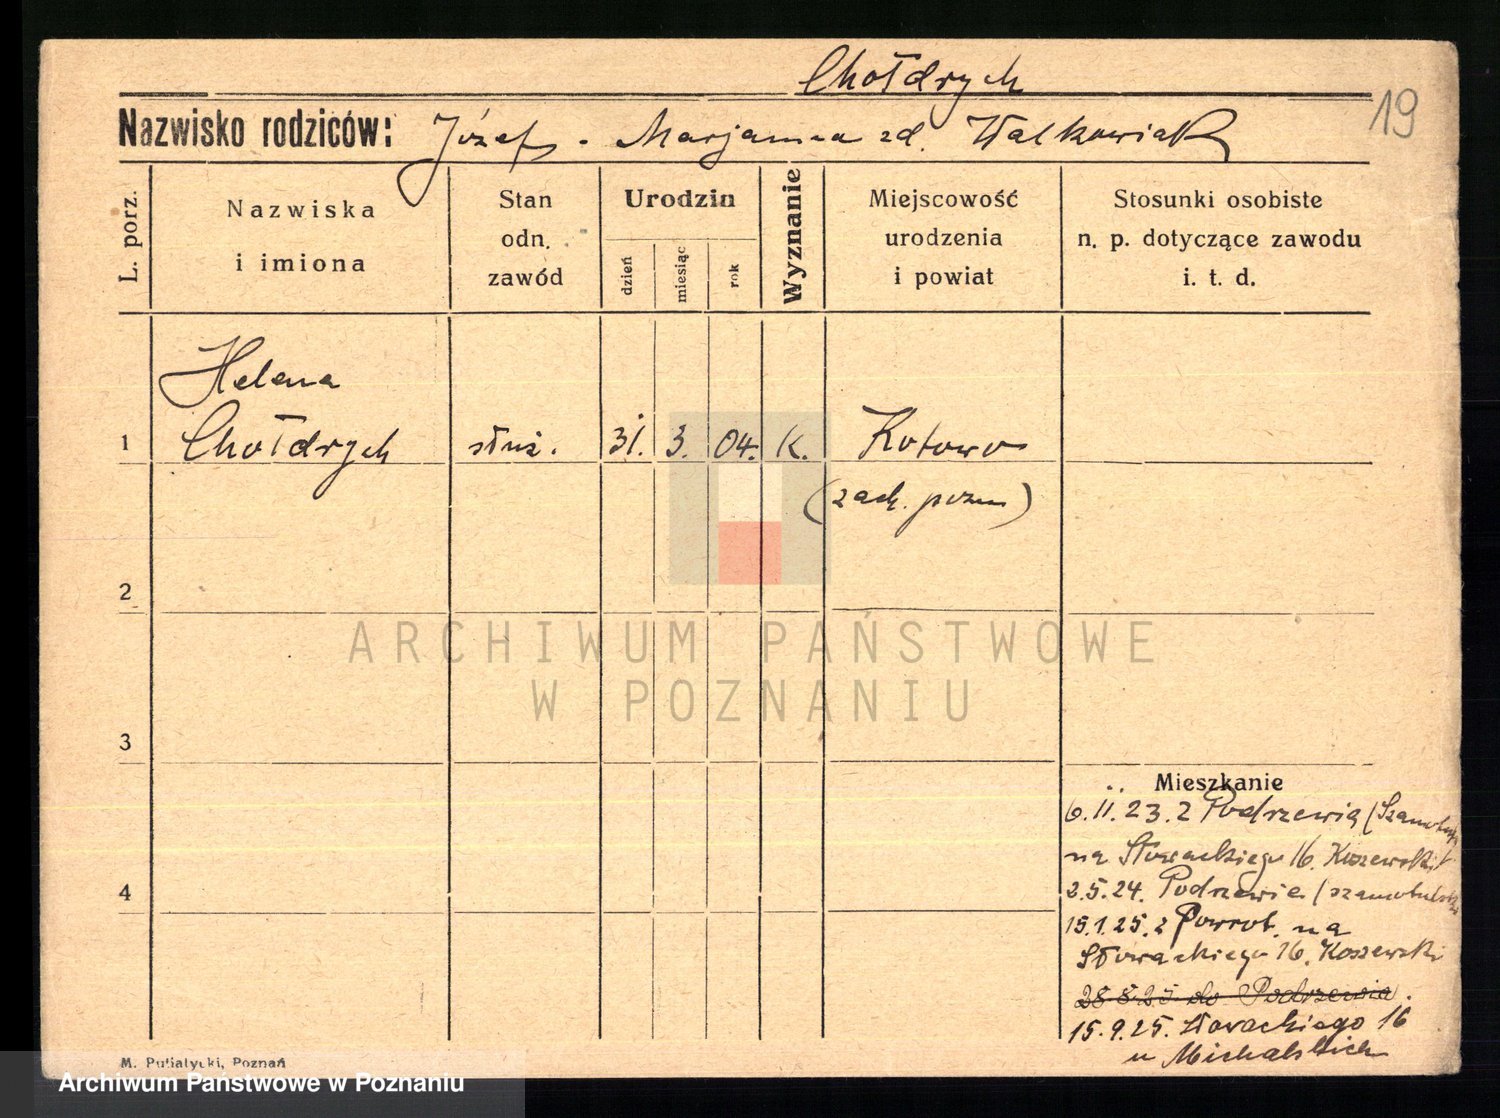 Chołdrych
19
Nazwisko rodziców: Józef - Marjanna zd. Walkowiak
L. porz.
Nazwiska
i imiona
Stan
odn.
zawód
Urodzin
dzień
miesiąc
rok
Wyznanie
Miejscowość
urodzenia
i powiat
Stosunki osobiste
n. p. dotyczące zawodu
i. t. d.
Helena
1 Chołdrych służ. 31. 3. 04. K. Kotowo
(zach. pozn)
2
3
4
ARCHIWUM PAŃSTWOWE
W POZNANIU
Mieszkanie
6.11.23. z Podrzewia
na Słowackiego 16. Koszewski
2.5.24. Podrzewie (szamotulski
15.1.25. z Powrot. na
Słowackiego 16. Koszewski
28 8 25 do Podrzewia.
15.9.25. Słowackiego 16
u Michalskich
M. Putiatycki, Poznań
Archiwum Państwowe w Poznaniu